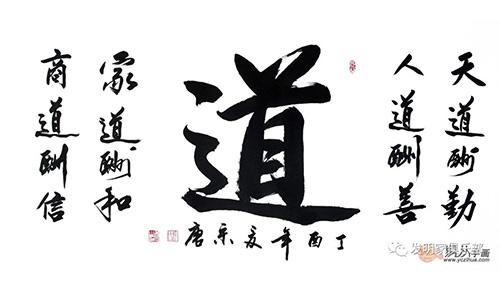 天道酬勤
人道酬善
道
家道酬和
商道酬信
丁酉年夏
发明家俱乐部
易从字画
www.yczihua.com